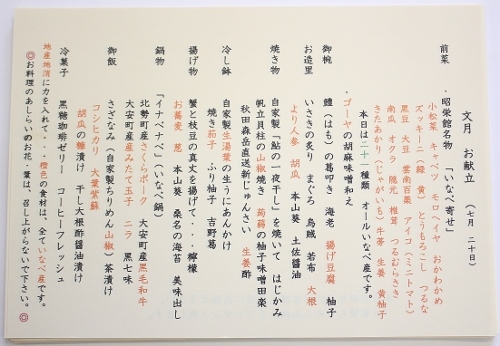 文月 お献立 （七月 二十日）
前菜
・昭栄館名物 「いなべ寄せ」
小松菜 キャベツ モロヘイヤ おかわかめ
ズッキーニ（緑 黄） とうもろこし つるな
黒豆 大豆 雲南百薬 アイコ（ミニトマト）
南瓜 オクラ 隠元 椎茸 つるむらさき
きたあかり（じゃがいも） 牛蒡 生姜 黄柚子
本日は二十一種類 オールいなべ産です。
・ゴーヤの胡麻味噌和え
御椀 鱧（はも）の葛叩き 海老 揚げ豆腐 柚子
お造里 いさきの炙り まぐろ 烏賊 若布 大根
より人参 胡瓜 本山葵 土佐醤油
焼き物 自家製「鮎の一夜干し」を焼いて はじかみ
帆立貝柱の山椒焼き 蒟蒻の柚子味噌田楽
秋田森岳直送新じゅんさい 生姜酢
冷し鉢 自家製生湯葉の生うにあんかけ
焼き茄子 ふり柚子 吉野葛
揚げ物 蟹と枝豆の真丈を揚げて・・・檸檬
お蕎麦 葱 本山葵 桑名の海苔 美味出し
鍋物 「イナベナベ」（いなべ鍋）
北勢町産さくらポーク 大安町産黒毛和牛
大安町産みたて玉子 ニラ 黒七味
御飯 さざなみ（自家製ちりめん山椒）茶漬け
コシヒカリ 大葉紫蘇
胡瓜の糠漬け 干し大根酢醤油漬け
冷菓子 黒糖珈琲ゼリー コーヒーフレッシュ
地産地消に力を入れて・・・橙色の食材は、全ていなべ産です。
◎お料理のあしらいのお花・葉は、召し上がらないで下さい。◎